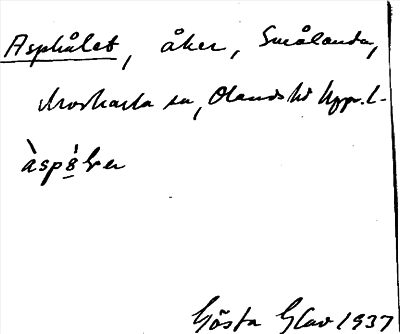 Asphålet, åker, Smålanda,
Morkarla sn, Olands hd Uppl.
Gösta Glav 1937